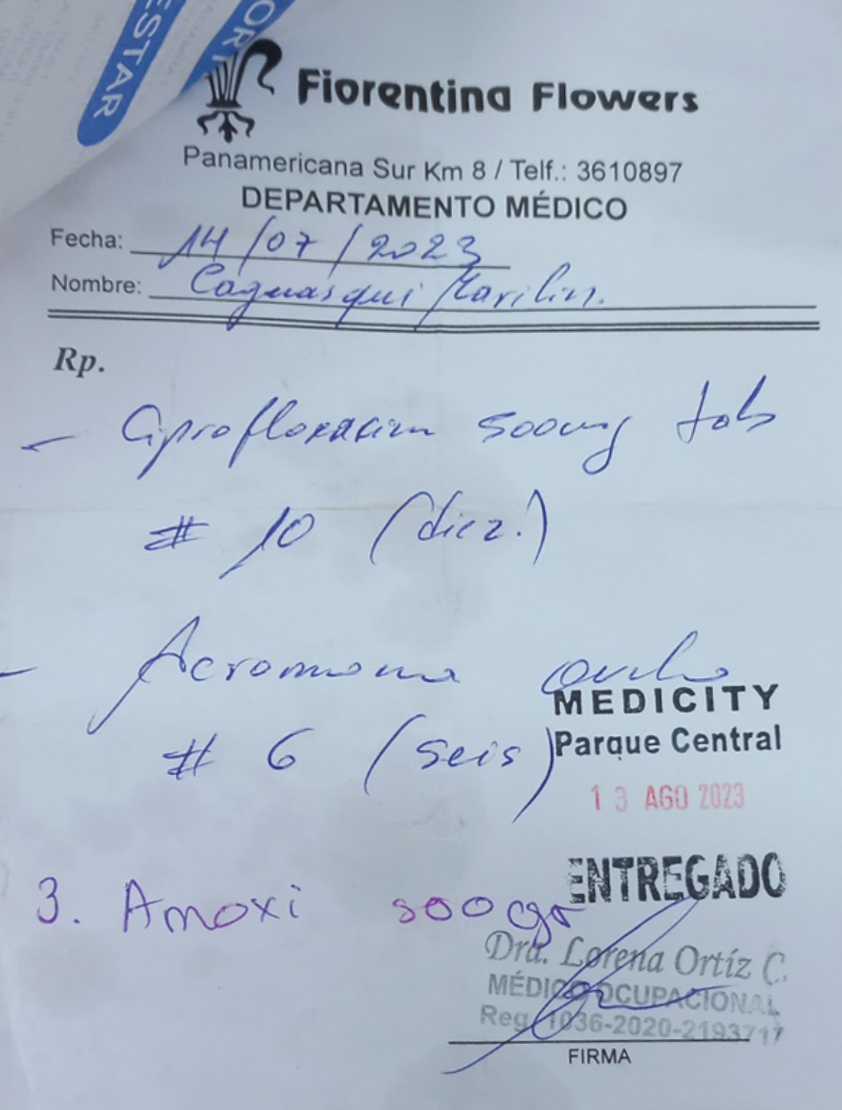 ESTAR
ORT
Fiorentina Flowers
Panamericana Sur Km 8 / Telf.: 3610897
DEPARTAMENTO MÉDICO
Fecha: 14/07/2023
Nombre: Caguasqui Marilin.
Rp.
- Ciprofloxacim 500mg tab
# 10 (diez.)
- Acromona ovulo
# 6 (seis)
MEDICITY
Parque Central
13 AGO 2023
3. Amoxi 500 gr
ENTREGADO
Dra. Lorena Ortíz C.
MÉDICO OCUPACIONAL
Reg. 1036-2020-2193717
FIRMA